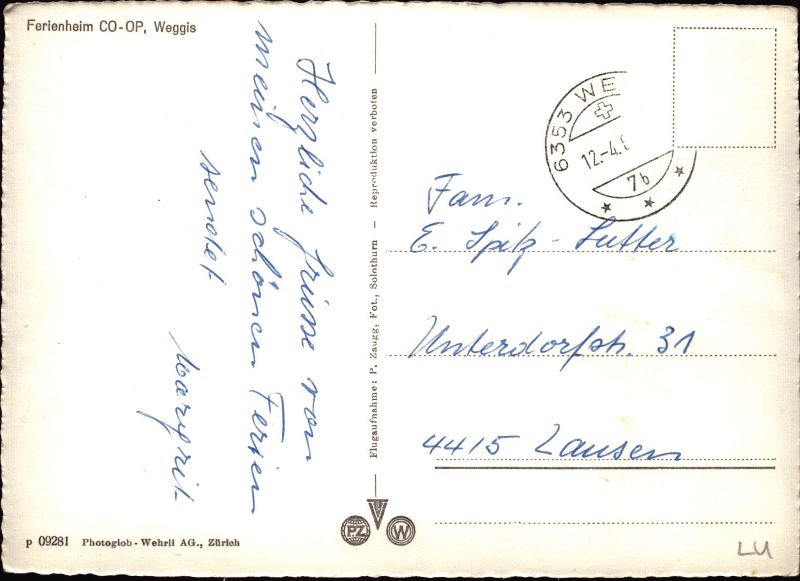 Ferienheim CO-OP, Weggis
Herzliche Grüsse von
meinen schönen Ferien
sendet
Margrit
Flugaufnahme: P. Zaugg, Fot., Solothurn — Reproduktion verboten
6353 WE
12.-4.
7b
Fam.
E. Spitz-Sutter
Unterdorfstr. 31
4415 Lausen
PZ W
p 09281 Photoglob-Wehrli AG., Zürich
LU